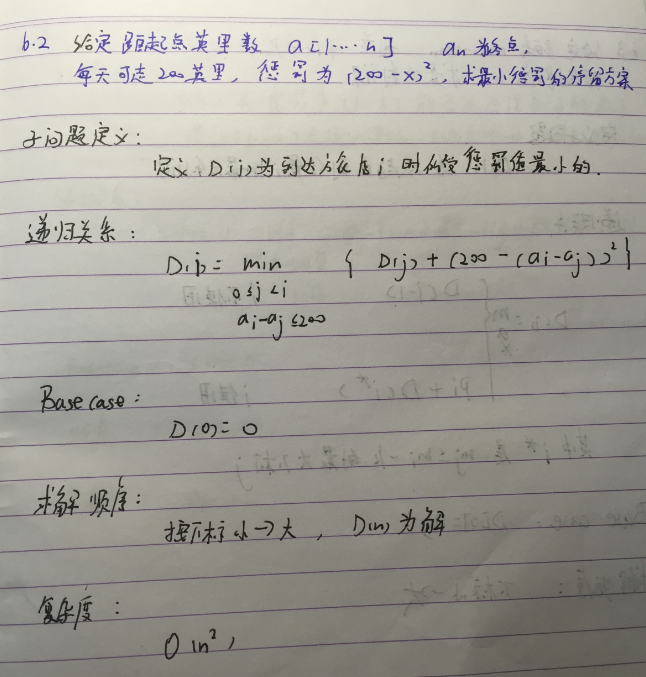 6.2 给定距起点英里数 a[1…n] an为终点,
每天可走200英里, 惩罚为 (200-x)², 求最小惩罚的停留方案
子问题定义:
定义 D(i)为到达旅店i时所受惩罚值最小的.
递归关系:
D(i) = min { D(j) + (200 - (ai-aj))² }
0≤j<i
ai-aj≤200
Base case:
D(0) = 0
求解顺序:
按下标小→大, D(n)为解
复杂度:
O(n²)